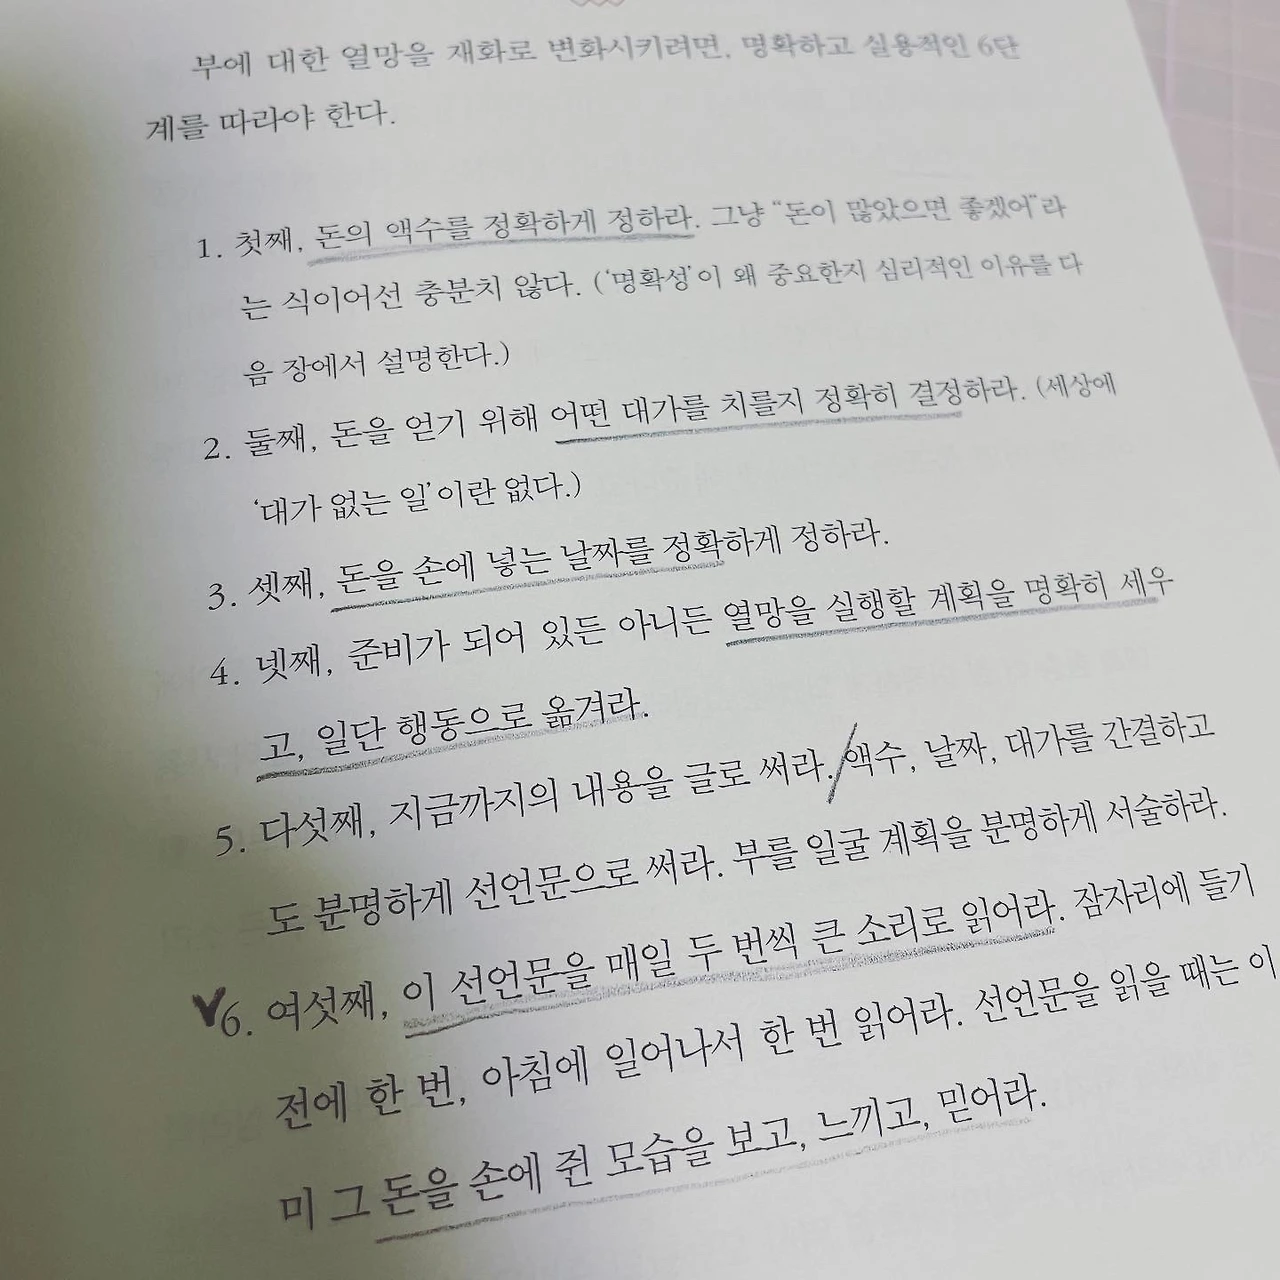 부에 대한 열망을 재화로 변화시키려면, 명확하고 실용적인 6단
계를 따라야 한다.
1. 첫째, 돈의 액수를 정확하게 정하라. 그냥 “돈이 많았으면 좋겠어”라
는 식이어선 충분치 않다. (‘명확성’이 왜 중요한지 심리적인 이유를 다
음 장에서 설명한다.)
2. 둘째, 돈을 얻기 위해 어떤 대가를 치를지 정확히 결정하라. (세상에
‘대가 없는 일’이란 없다.)
3. 셋째, 돈을 손에 넣는 날짜를 정확하게 정하라.
4. 넷째, 준비가 되어 있든 아니든 열망을 실행할 계획을 명확히 세우
고, 일단 행동으로 옮겨라.
5. 다섯째, 지금까지의 내용을 글로 써라. 액수, 날짜, 대가를 간결하고
도 분명하게 선언문으로 써라. 부를 일굴 계획을 분명하게 서술하라.
6. 여섯째, 이 선언문을 매일 두 번씩 큰 소리로 읽어라. 잠자리에 들기
전에 한 번, 아침에 일어나서 한 번 읽어라. 선언문을 읽을 때는 이
미 그 돈을 손에 쥔 모습을 보고, 느끼고, 믿어라.